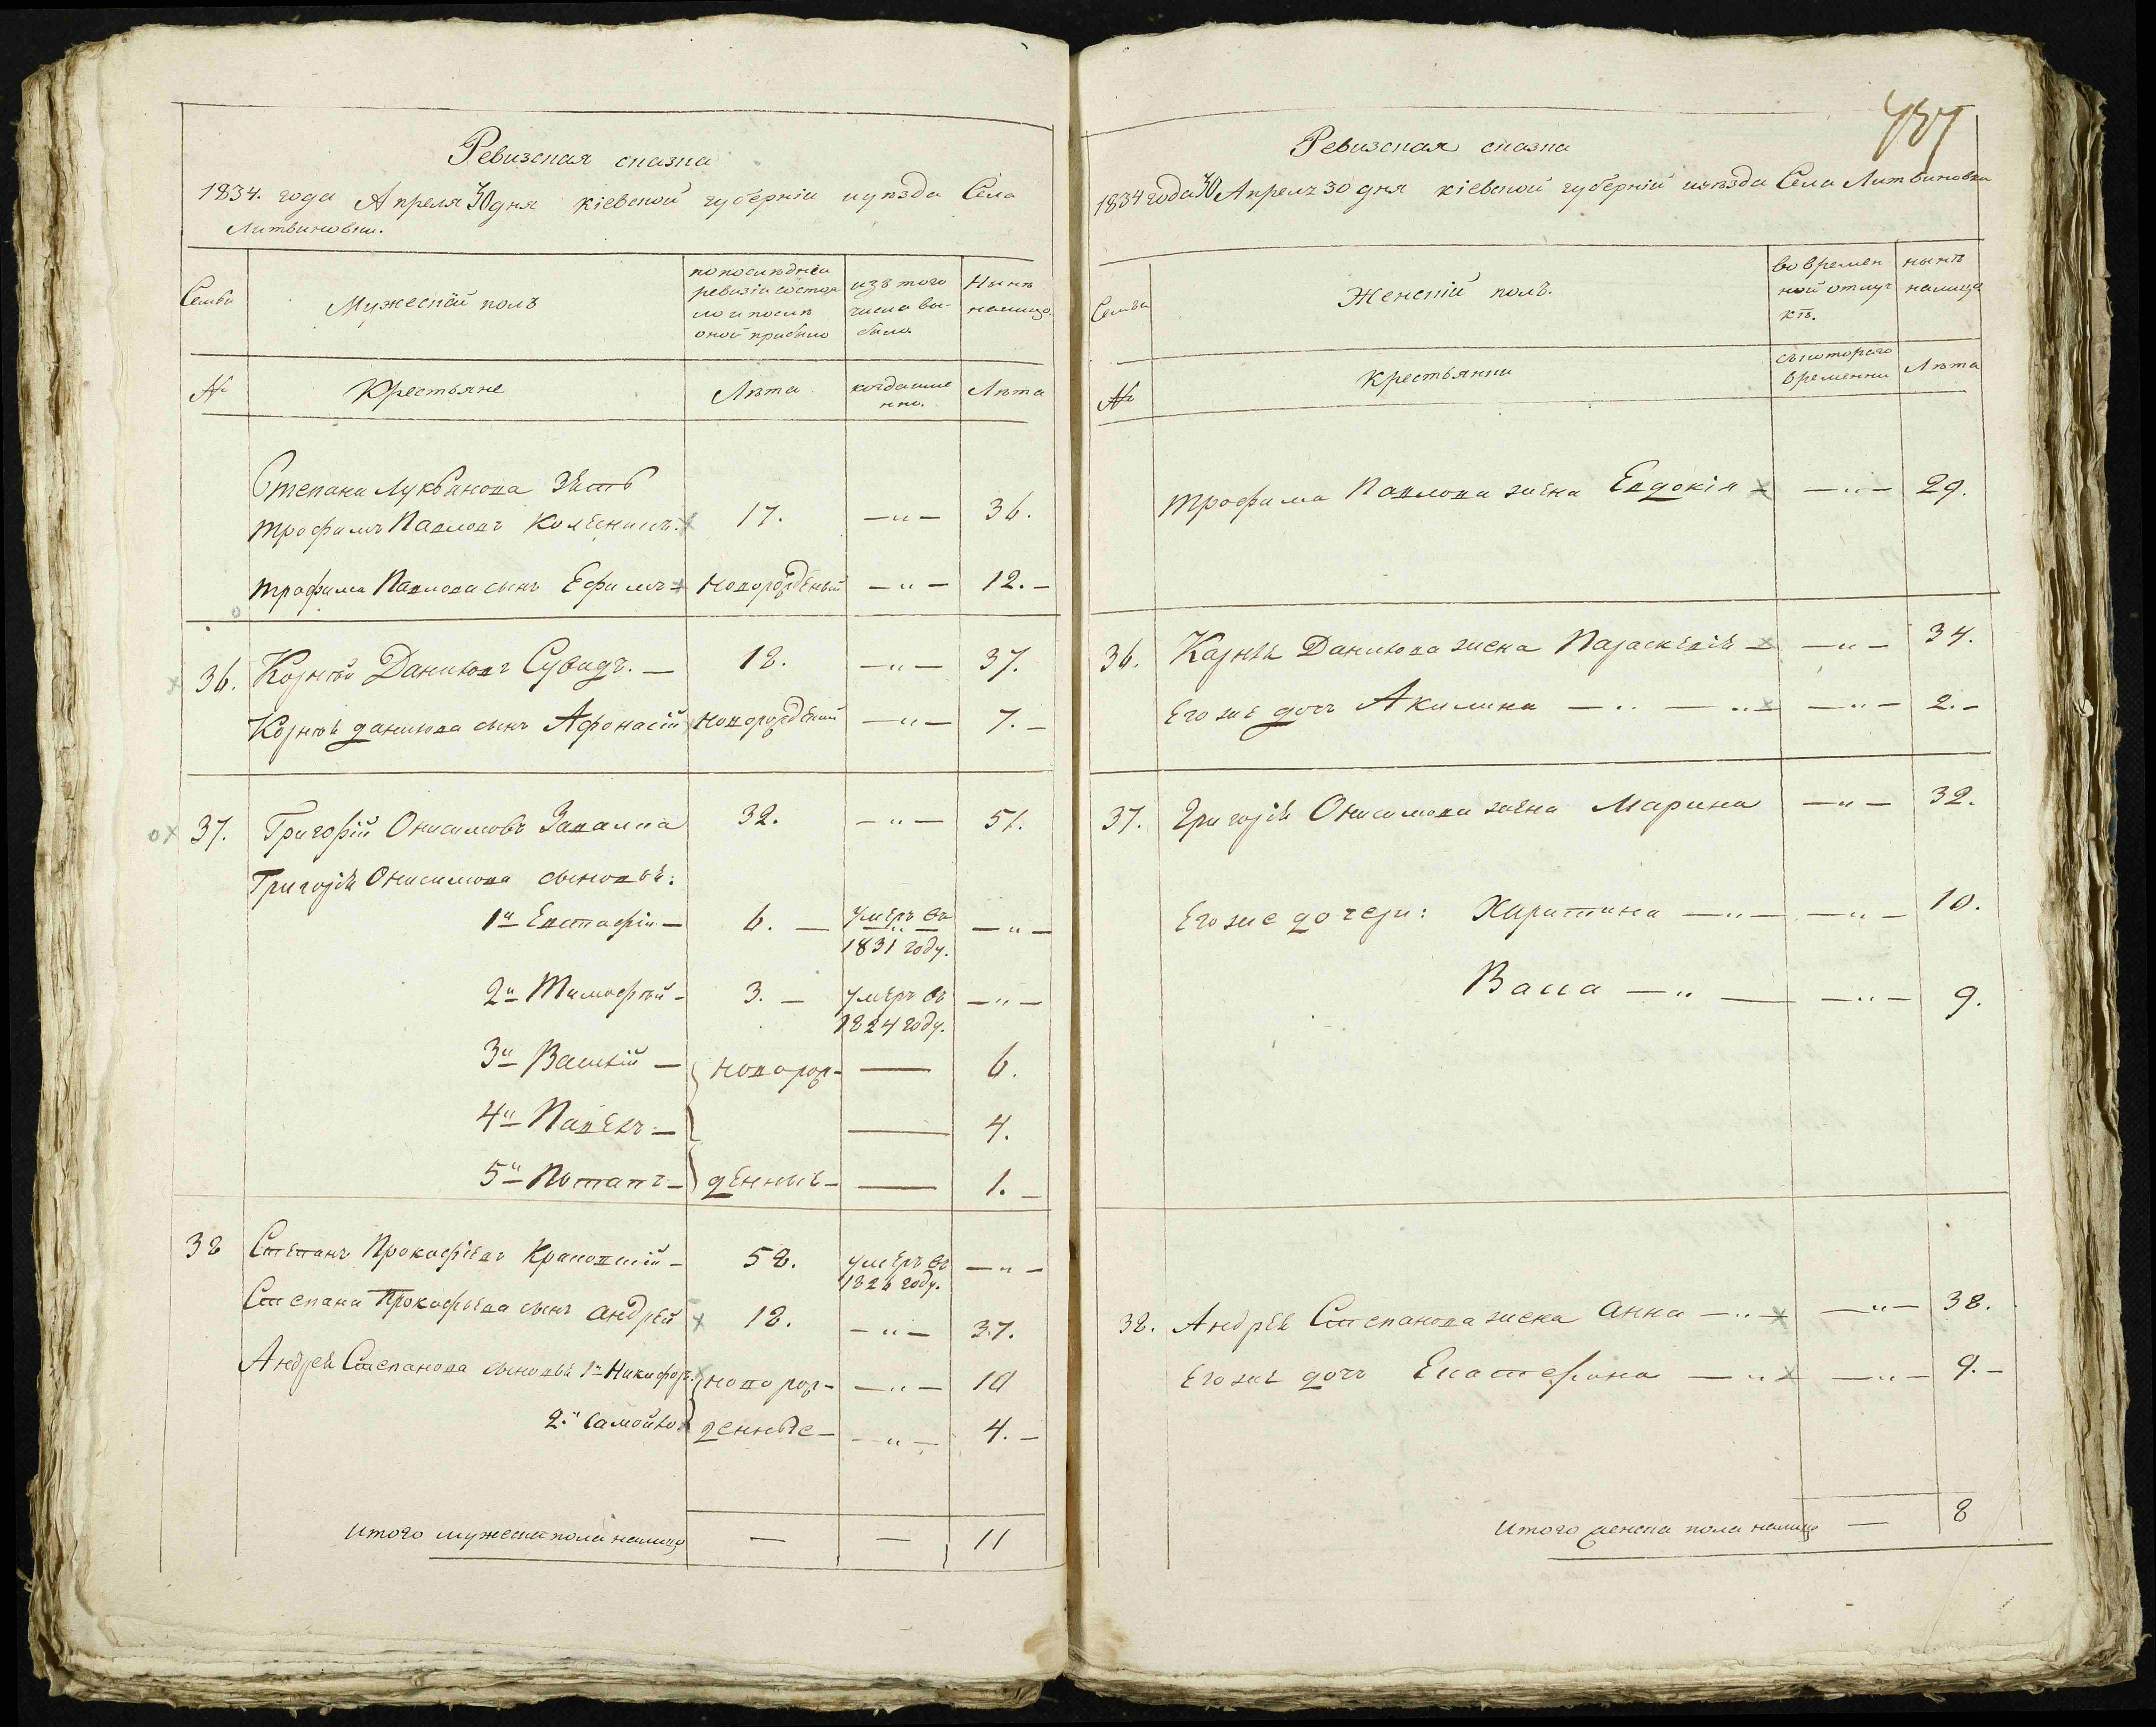 Ревизская сказка
1834. года Апреля 30 дня кіевской губерніи и уѣзда Села
Литвиновки.
Семьи
Мужескій полъ
по послѣдней
ревизіи состоя
ло и послѣ
оной прибыло
изъ того
числа вы-
было
Нынѣ
налицо
№
Крестьяне
Лѣта
когда име
нно.
Лѣта
Степана Лукьянова зять
трофимъ Павловъ Колѣсникъ. 17. —〃— 36.
трофима Павлова сынъ Ефимъ новорожденый —〃— 12.—
36. Корнѣй Даниловъ Сувидъ.— 18. —〃— 37.
Корнѣя данилова сынъ Афонасій новорожденый —〃— 7.—
37. Григорій Онисимовъ Завалка 32. —〃— 51.
Григорія Онисимова сыновья:
1й Евстафій— 6.— умеръ въ
1831 году. —〃—
2й Тимофѣй— 3.— умеръ въ
1824 году. —〃—
3й Василій— новорож- — 6.
4й Павелъ— — 4.
5й Потапъ— денные— — 1.—
38 Степанъ Прокофіевъ 58. умеръ въ
1826 году. —〃—
Степана Прокофьева сынъ андрей 18. —〃— 37.
Андрея Степанова сыновья 1й Никифоръ. новорож- —〃— 10
2й Самойло денные— —〃— 4.—
Итого мужеска пола налицо — — 11
Ревизская сказка
1834 года 30 Апрель 30 дня кіевской губерніи и уѣзда Села Литвиновки
Семьи
Женскій полъ.
во времен
ной отлуч
кѣ.
нынѣ
налицо
№
Крестьянки
съ котораго
времени
Лѣта
трофима Павлова жена Евдокія —〃— 29.
36. Карнѣя Данилова жена Параскевія —〃— 34.
Его же дочь Акилина —〃— —〃— 2.—
37. Григорія Онисимова жена Марина —〃— 32.
Его же дочери: Харитина —〃— —〃— 10.
Васса —〃— —〃— 9.
38. Андрея Степанова жена Анна —〃— —〃— 38.
Его же дочь Екатерина —〃— —〃— 9.—
Итого женска пола налицо — 8